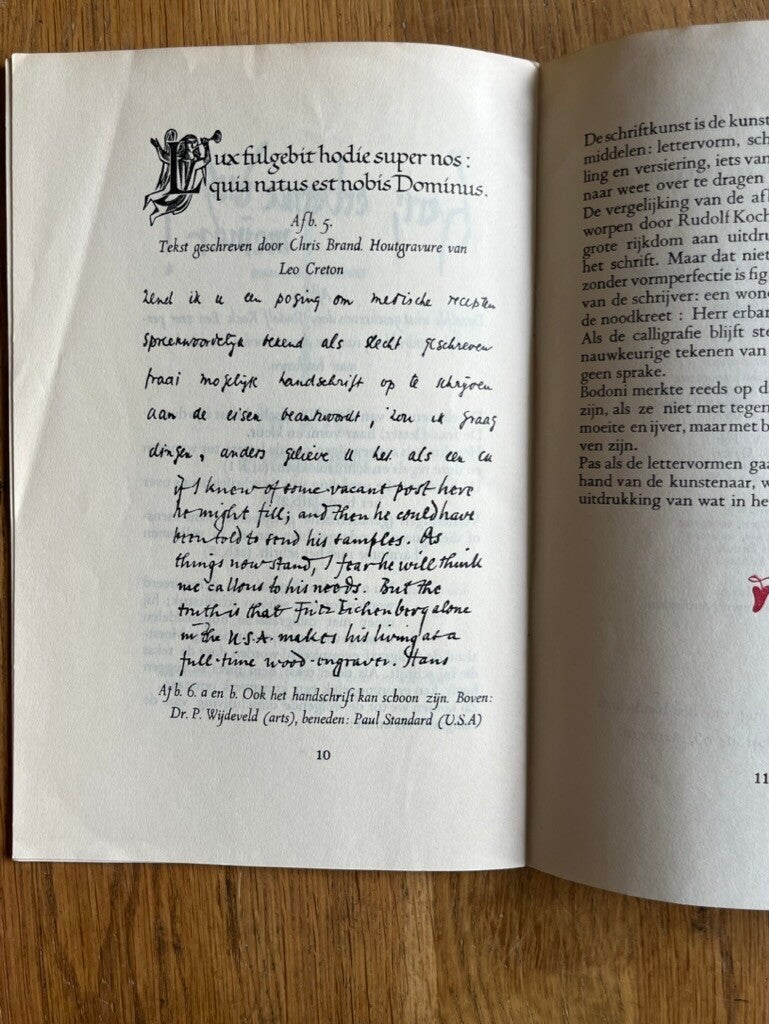 Lux fulgebit hodie super nos :
quia natus est nobis Dominus.
Afb. 5.
Tekst geschreven door Chris Brand. Houtgravure van
Leo Creton
Zend ik u een poging om medische recepten
spreekwoordelijk bekend als slecht geschreven
fraai mogelijk handschrift op te schrijven
aan de eisen beantwoordt, zou ik graag
dingen, anders gelieve u het als een cu
if I knew of some vacant post here
he might fill; and then he could have
been told to send his samples. As
things now stand, I fear he will think
me callous to his needs. But the
truth is that Fritz Eichenberg alone
in the U.S.A. makes his living at a
full-time wood-engraver. Hans
Afb. 6. a en b. Ook het handschrift kan schoon zijn. Boven:
Dr. P. Wijdeveld (arts), beneden: Paul Standard (U.S.A)
10
De schriftkunst is de kunst
middelen: lettervorm, sch
ling en versiering, iets van
naar weet over te dragen
De vergelijking van de af
worpen door Rudolf Koch
grote rijkdom aan uitdru
het schrift. Maar dat niet
zonder vormperfectie is fig
van de schrijver: een won
de noodkreet : Herr erbar
Als de calligrafie blijft ste
nauwkeurige tekenen van
geen sprake.
Bodoni merkte reeds op d
zijn, als ze niet met tegen
moeite en ijver, maar met b
ven zijn.
Pas als de lettervormen gaa
hand van de kunstenaar, w
uitdrukking van wat in he
11